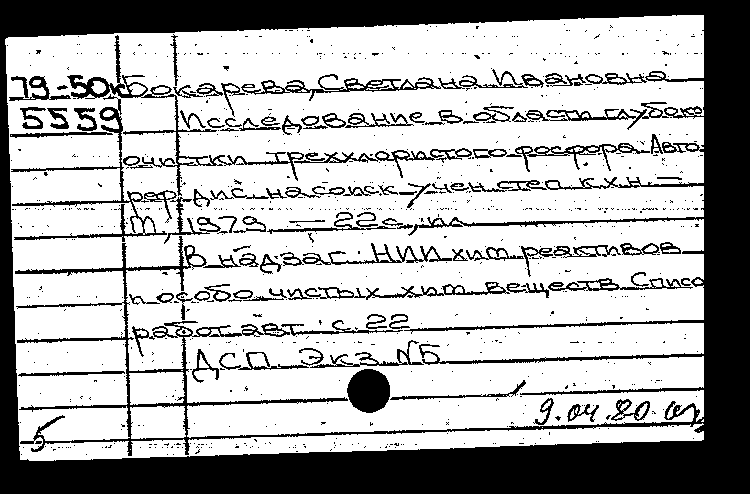 79-50к Бокарева, Светлана Ивановна
5559 Исследование в области глубоко
очистки треххлористого фосфора: Авто-
реф. дис. на соиск. учен. степ. к.х.н. —
М., 1979. — 22 с., ил.
В надзаг.: НИИ хим. реактивов
и особо чистых хим. веществ. Списо
работ авт.: с. 22
ДСП. Экз. №5
9.04.80
5